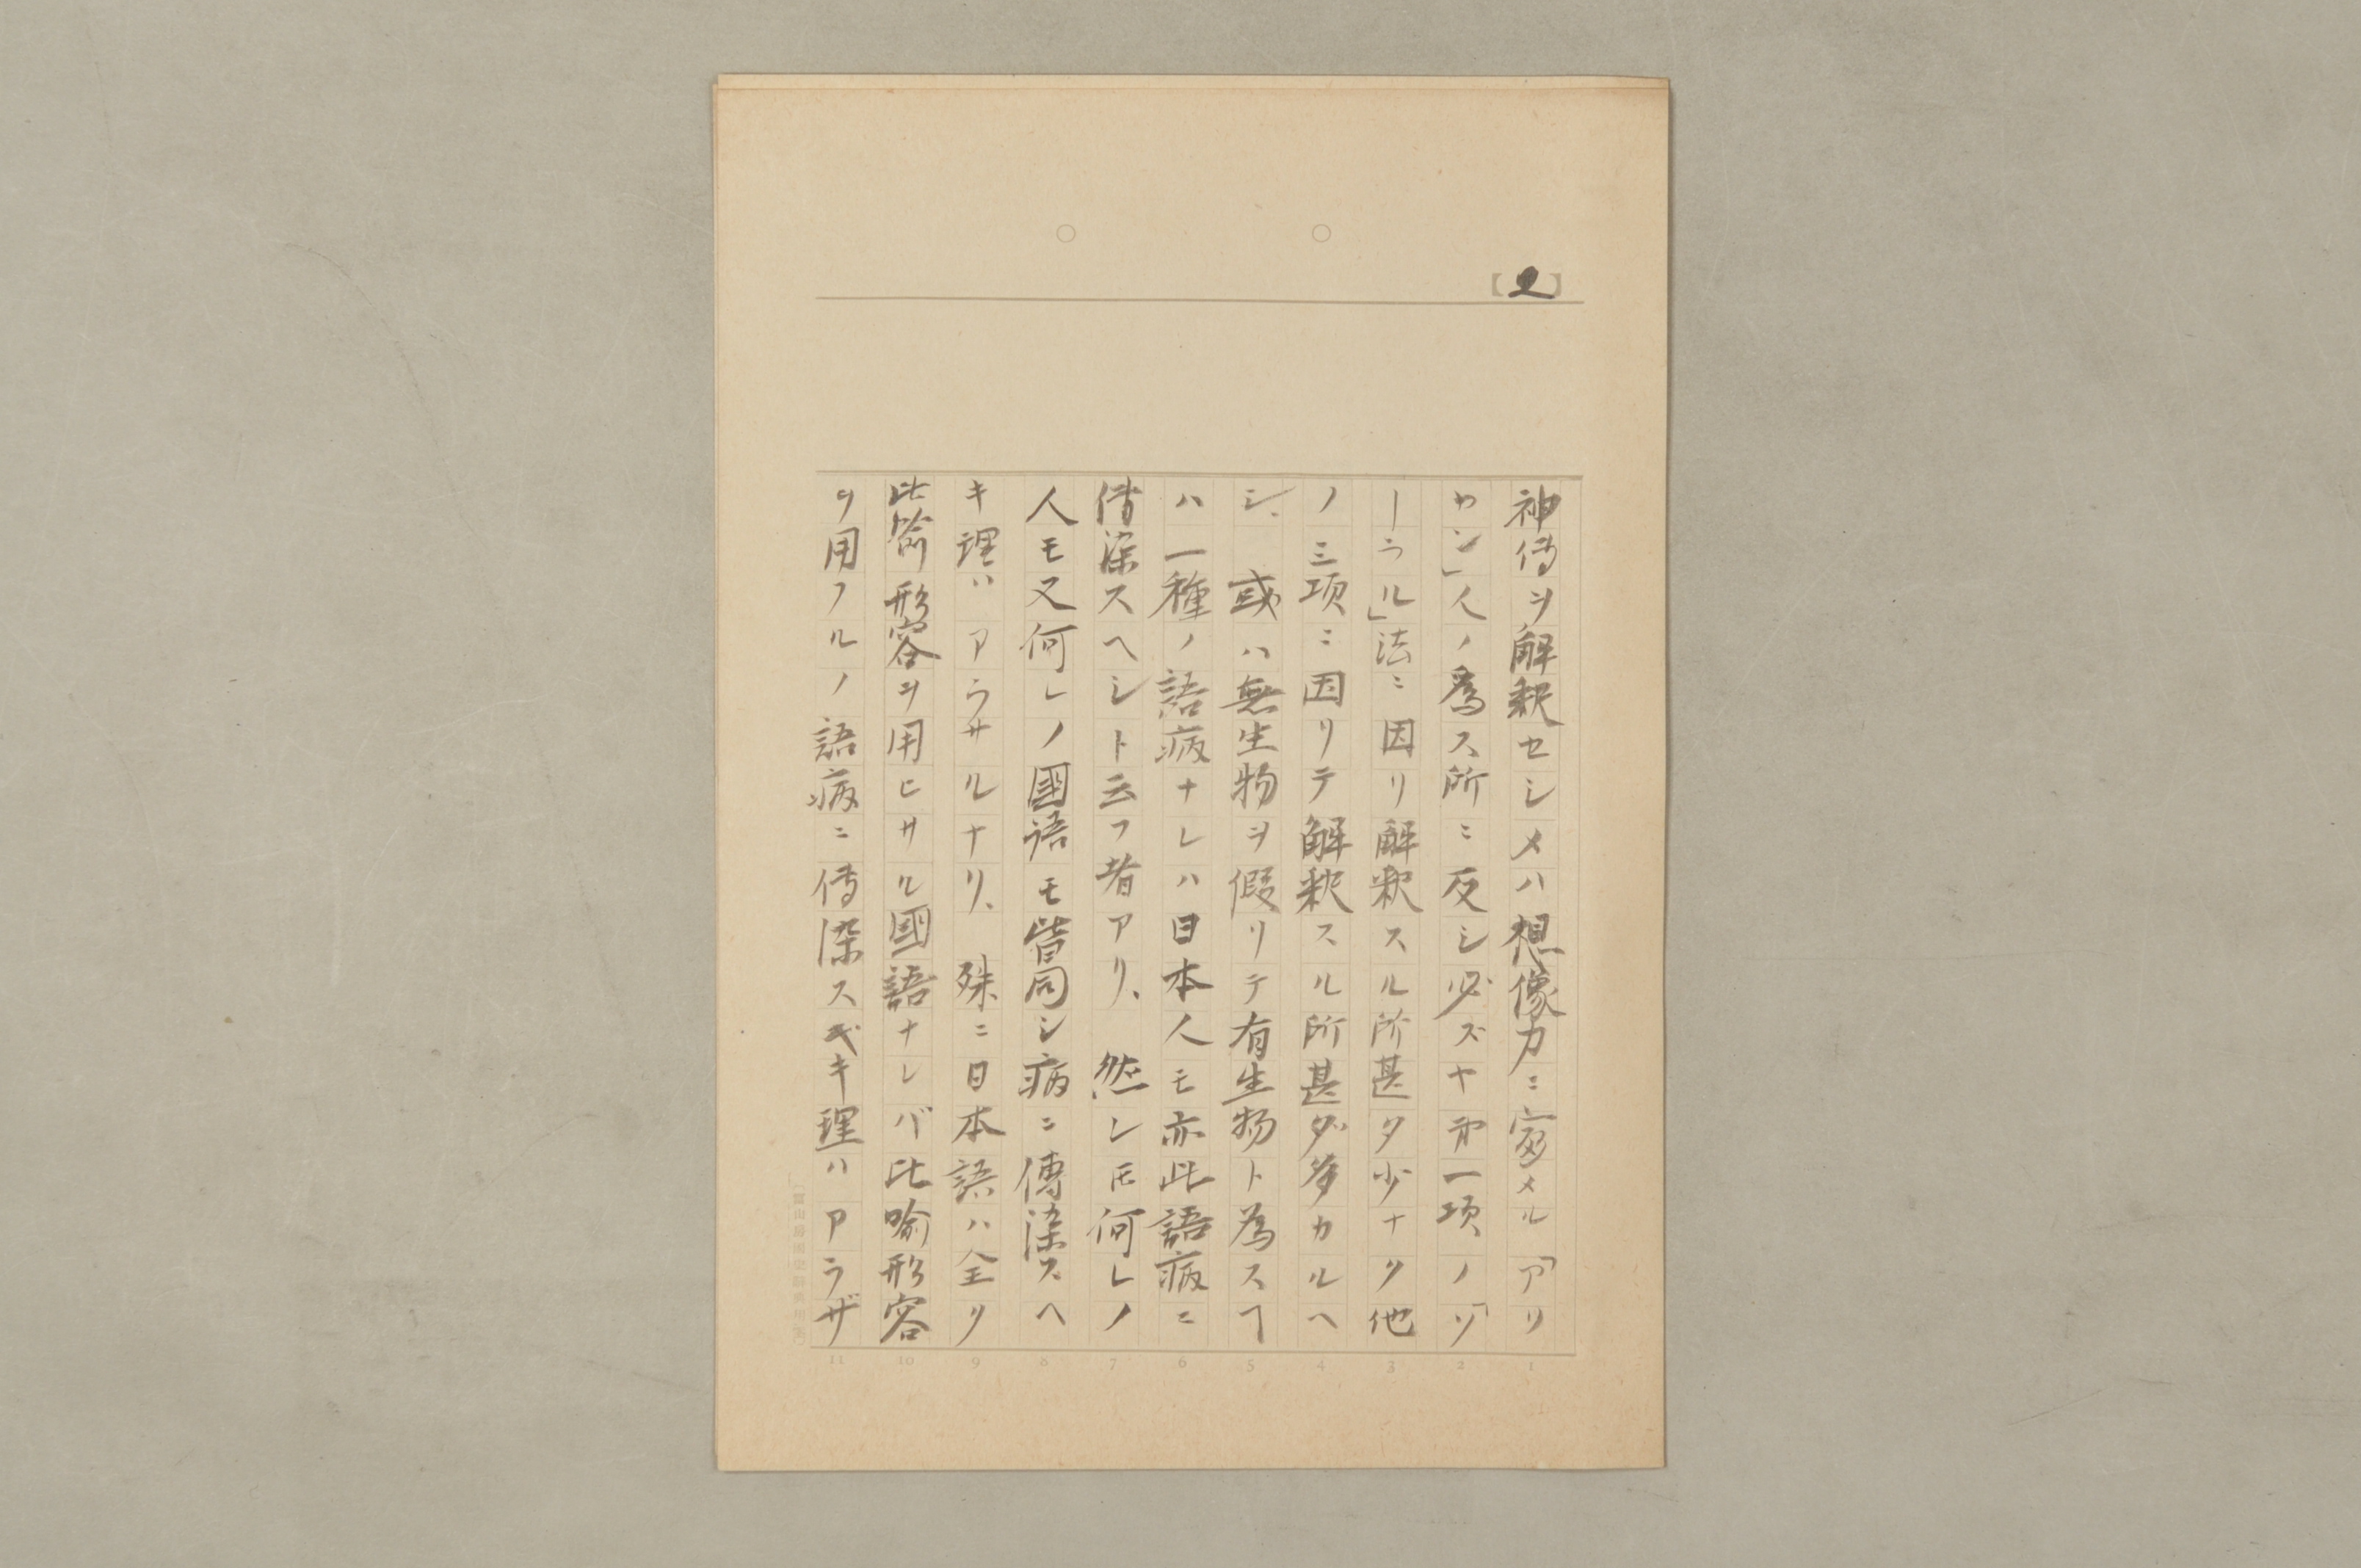 【2】
神傳ヲ解釈セシメハ想像力ニ富メル「アリ
ヤン」人ノ為ス所ニ反シ必ズヤ第一項ノ「ソ
ーラル」法ニ因リ解釈スル所甚タ少ナク他
ノ三項ニ因リテ解釈スル所甚ダ多カルヘ
シ、 或ハ無生物ヲ假リテ有生物ト為スヿ
ハ一種ノ語病ナレハ日本人モ亦此語病ニ
傳染スヘシト云フ者アリ、 然レ𪜈何レノ
人モ又何レノ國語モ皆同シ病ニ傳染スヘ
キ理ハアラサルナリ、 殊ニ日本語ハ全ク
比喩形容ヲ用ヒサル國語ナレバ比喩形容
ヲ用フルノ語病ニ傳染スベキ理ハアラザ
1
2
3
4
5
6
7
8
9
10
11